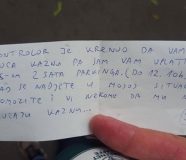 KONTROLOR JE KRENUO DA VAM
UCA KAZNU PA SAM VAM UPLATI
2 SATA PARKINGA. (DO 12.10h)
AD SE NADJETE U MOJOJ SITUAC
OMOZITE I VI NEKOME DA MU
KAZNU...